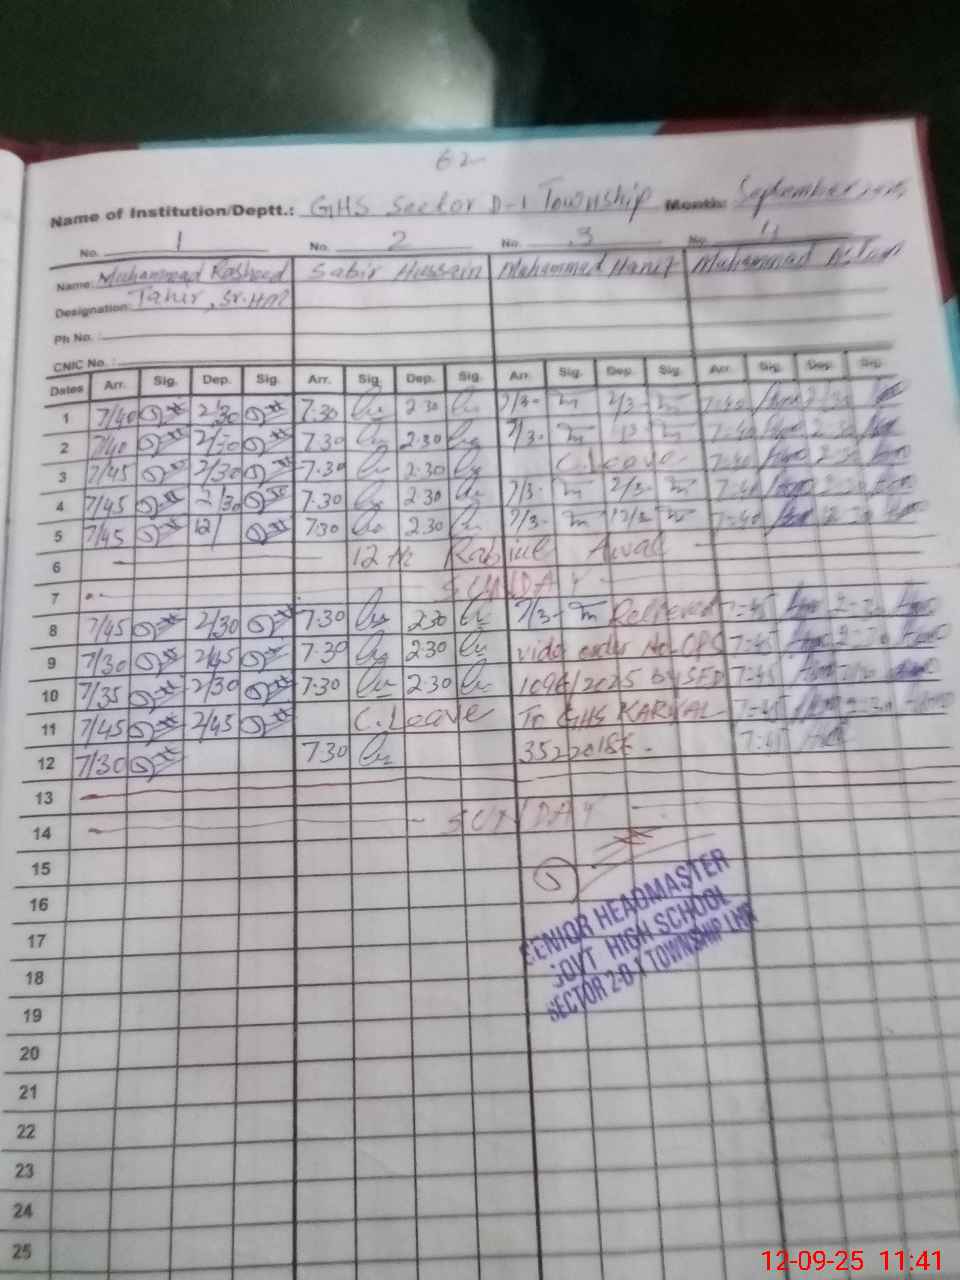 62
Name of Institution/Deptt.: GHS Sector D-1 Township Month: September
No. 1 No. 2 No. 3 No. 4
Name: Muhammad Rasheed Sabir Hussain Muhammad Hanif Muhammad
Designation: Tahir, Sr. HM
Ph No. :
CNIC No. :
Dates Arr. Sig. Dep. Sig. Arr. Sig. Dep. Sig. Arr. Sig. Dep. Sig. Arr. Sig. Dep. Sig.
1 7/40 2/30 7.30 2.30 7/3- 2/3- 7:40 2:30
2 7/40 2/30 7.30 2.30 7/3- 7:40 2:30
3 7/45 2/30 7.30 2.30 C. Leave 7:40 2:30
4 7/45 2/30 7.30 2.30 7/3- 2/3- 7:40 2:30
5 7/45 12/ 7.30 2.30 7/3- 12/3- 7:40 2:30
6 12th Rabiul Awal
7 SUNDAY
8 7/45 2/30 7.30 2.30 7/3- Relieved 7:45 2:30
9 7/30 2/45 7.30 2.30 vide order No. OPS 7:45 2:30
10 7/35 2/30 7.30 2.30 1096/2025 By SED 7:45
11 7/45 2/45 C. Leave To GHS KARYAL 7:45 2:30
12 7/30 7.30 7:45
13
14 SUNDAY
15
16
SENIOR HEADMASTER
GOVT HIGH SCHOOL
SECTOR 2-D-1 TOWNSHIP LHR
17
18
19
20
21
22
23
24
25
12-09-25 11:41